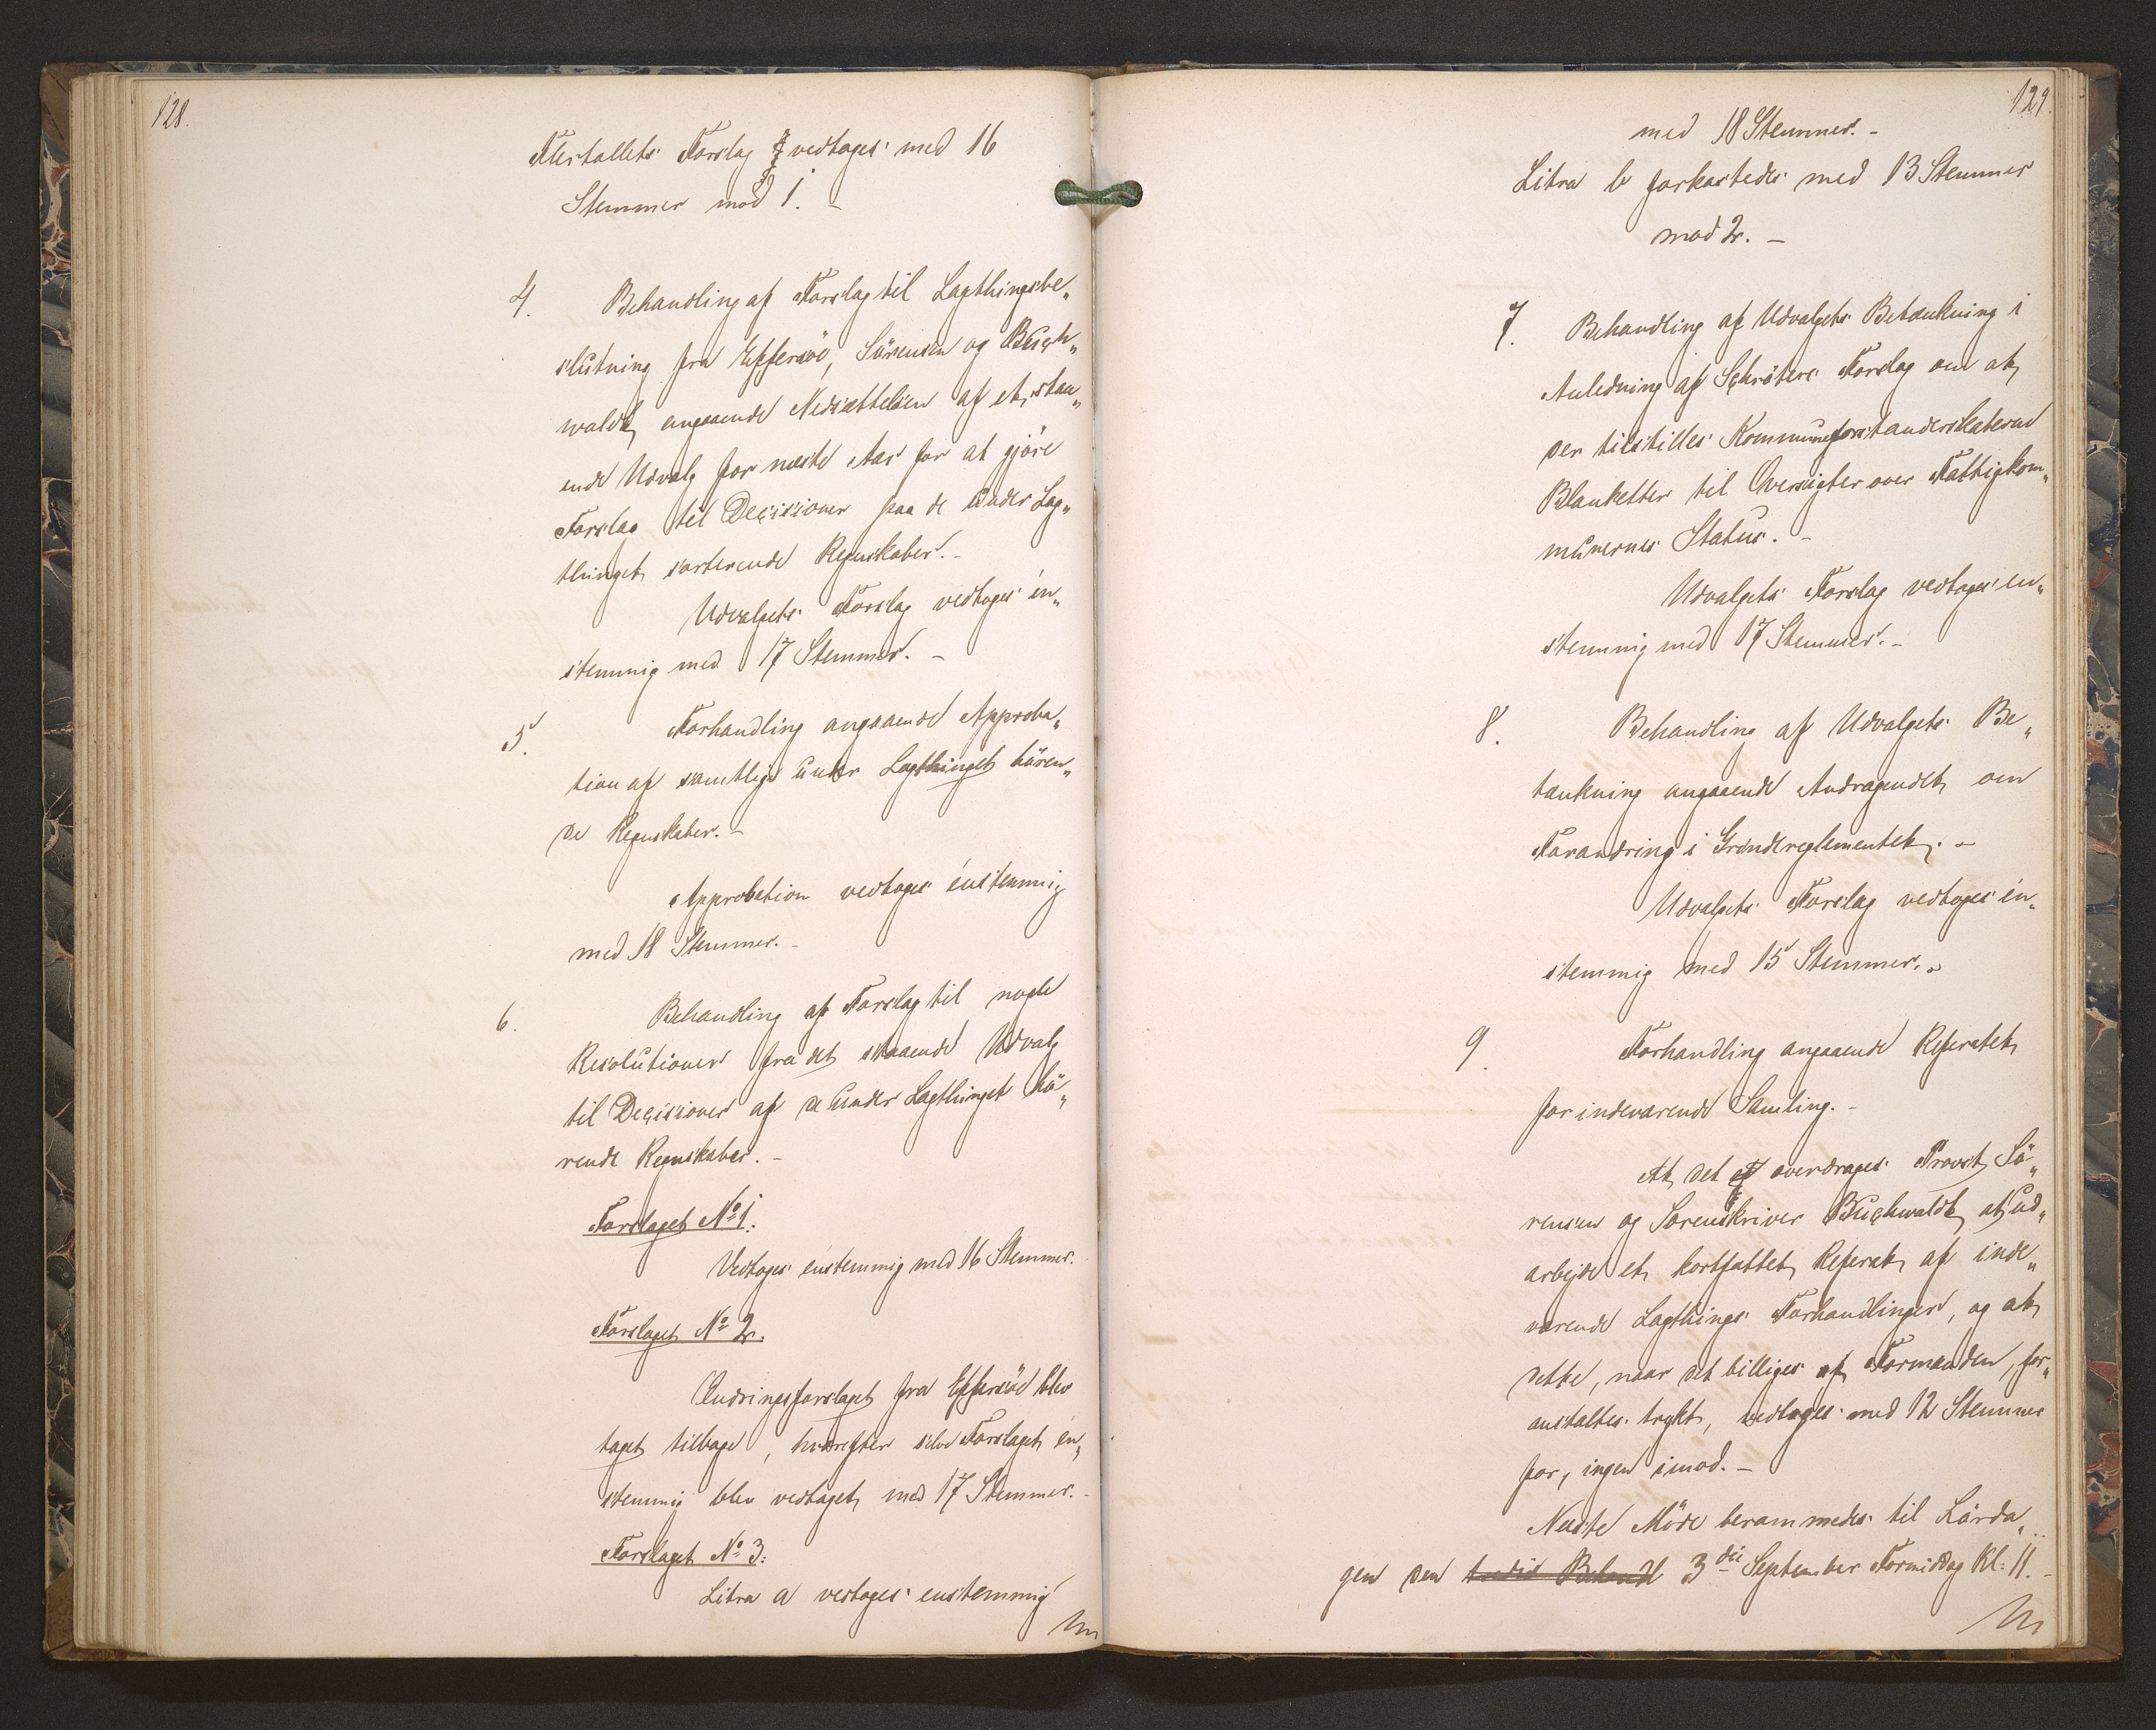 128.
Flertallets Forslag vedtoges med 16
Stemmer mod 1. –
4. Behandling af Forslag til Lagthingsbe„
slutning fra Effersöe, Sörensen og Buch„
waldt, angaaende Nedsættelsen af et staa„
ende Udvalg for næste Aar for at gjöre
Forslag til Decisioner paa de under Lag„
thinget sorterende Regnskaber. –
Udvalgets Forslag vedtoges én„
stemmig med 17 Stemmer. –
5. Forhandling angaaende Approba„
tion af samtlige under Lagthinget hören„
de Regnskaber. –
Approbation vedtoges énstemmig
med 18 Stemmer. –
6. Behandling af Forslag til nogle
Resolutioner fra det staaende Udvalg
til Decisioner af de under Lagthinget hö„
rende Regnskaber. –
Forslaget No 1.
Vedtoges énstemmig med 16 Stemmer.
Forslaget No 2.
Ændringsforslaget fra Effersöe blev
taget tilbage, hvorefter selve Forslaget én„
stemmig blev vedtaget med 17 Stemmer. –
Forslaget No 3:
Litra a vedtoges enstemmig
129.
med 18 Stemmer. –
Litra b forkastedes med 13 Stemmer
mod 2. –
7. Behandling af Udvalgets Betænkning i
Anledning af Schröters Forslag om at
der tilstilles Kommuneforstanderskaberne
Blanketter til Oversigter over Fattigkom„
munernes Status. –
Udvalgets Forslag vedtoges en„
stemmig med 17 Stemmer. –
8. Behandling af Udvalgets Be„
tænkning angaaende Andragendet om
Forandring i Grundereglementet. –
Udvalgets Forslag vedtoges én„
stemmig med 15 Stemmer. –
9. Forhandling angaaende Referatet
for indeværende Samling. –
At det overdrages Provst Sö„
rensen og Sorenskriver Buchwaldt at ud„
arbejde et kortfattet Referat af inde„
værende Lagthings Forhandlinger, og at
dette, naar det billiges af Formanden, for„
anstaltes trykt, vedtoges med 12 Stemmer
for, ingen imod. –
Næste Möde berammedes til Lörda„
gen den 3die September Formiddag Kl: 11. –